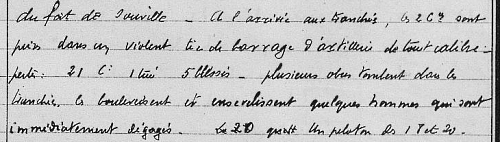 du fort de Souville - A l'arrivée aux tranchées, les 2 Cies sont
prises dans un violent tir de barrage d'artillerie de tout calibre -
perte: 21e Cie 1 tué 5 blessés - plusieurs obus tombent dans les
tranchées, les bouleversent et ensevelissent quelques hommes qui sont
immédiatement dégagés. un peloton des 17 et 20.